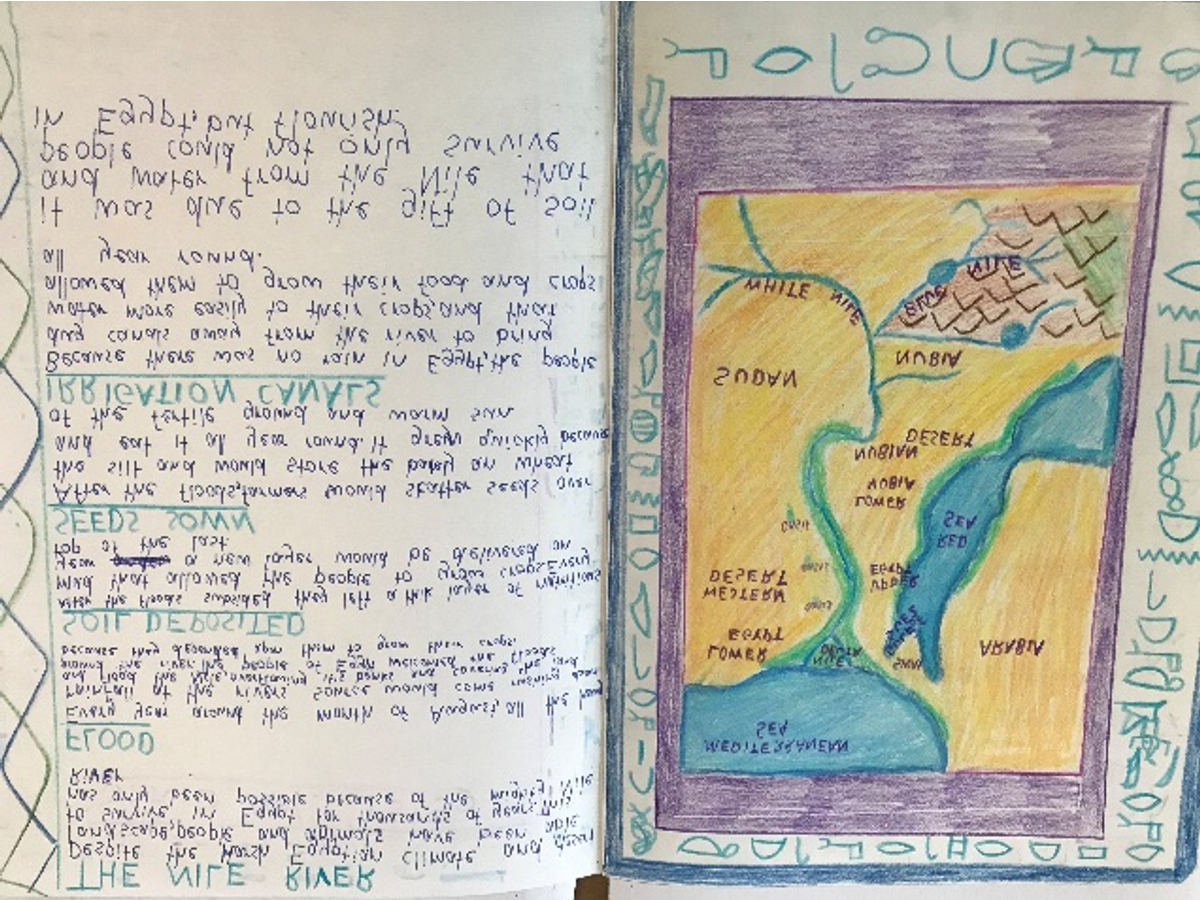 THE NILE RIVER
Despite the harsh Egyptian climate and desert
landscape, people and animals have been able
to survive in Egypt for thousands of years. This
has only been possible because of the mighty Nile
River
FLOOD
Every year around the month of August, all the heavy
rainfall at the rivers source would come rushing down
and flood the Nile, overflowing it's banks and covering the land
around the river. The people of Egypt welcomed the floods
because they depended upon them to grow their crops.
SOIL DEPOSITED
After the floods subsided they left a thik layer of nutritious
mud that allowed the people to grow crops. Every
year a new layer would be delivered on
top of the last
SEEDS SOWN
After the floods, farmers would scatter seeds over
the silt and would store the barley an wheat
and eat it all year round. It grew quickly because
of the fertile ground and warm sun
IRRIGATION CANALS
Because there was no rain in Egypt, the people
dug canals away from the river to bring
water more easily to their crops and that
allowed them to grow their food and crops
all year round.
it was due to the gift of soil
and water from the Nile that
people could not only survive
in Egypt, but flourish.
MEDITERRANEAN
SEA
NILE
DELTA
LOWER
EGYPT
SINAI
ARABIA
WESTERN
DESERT
OASIS
OASIS
UPPER
EGYPT
OASIS
RED
SEA
LOWER
NUBIA
NUBIAN
DESERT
SUDAN
NUBIA
WHITE NILE
BLUE NILE